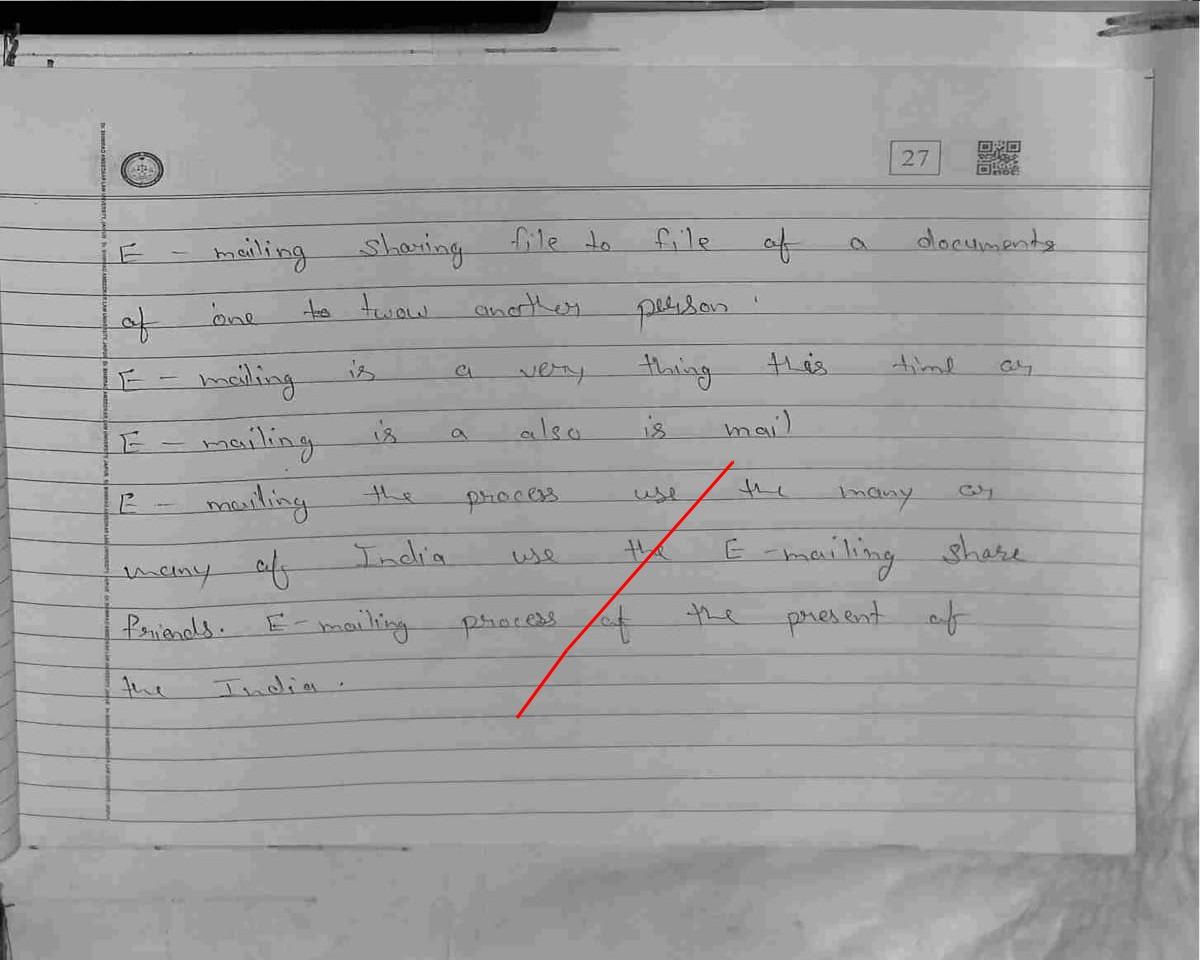 27
E - mailing sharing file to file of a documents
of one to twow another person.
E - mailing is a very thing this time as
E - mailing is a also is mail
E - mailing the process use the many as
many of India use the E-mailing share
friends. E-mailing process of the present of
the India.